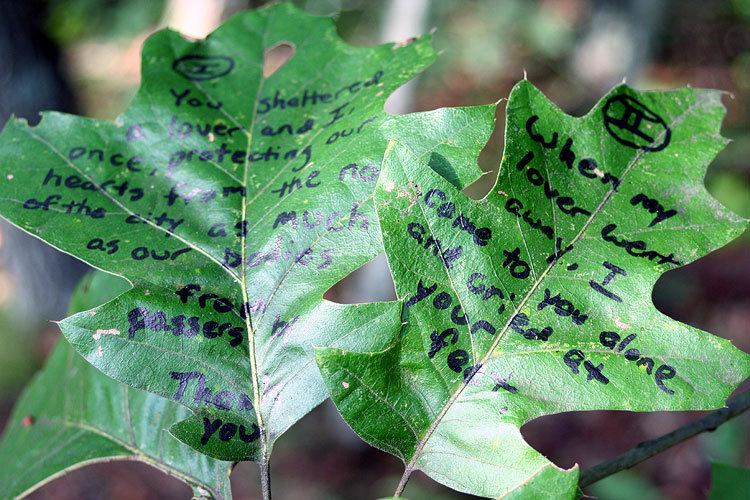 H
You sheltered
a lover and I,
once, protecting our
hearts from the no
of the city as much
as our bodies
from
passers
Thank
You
H
When my
lover went
away, I
came to you alone
and cried at
your feet